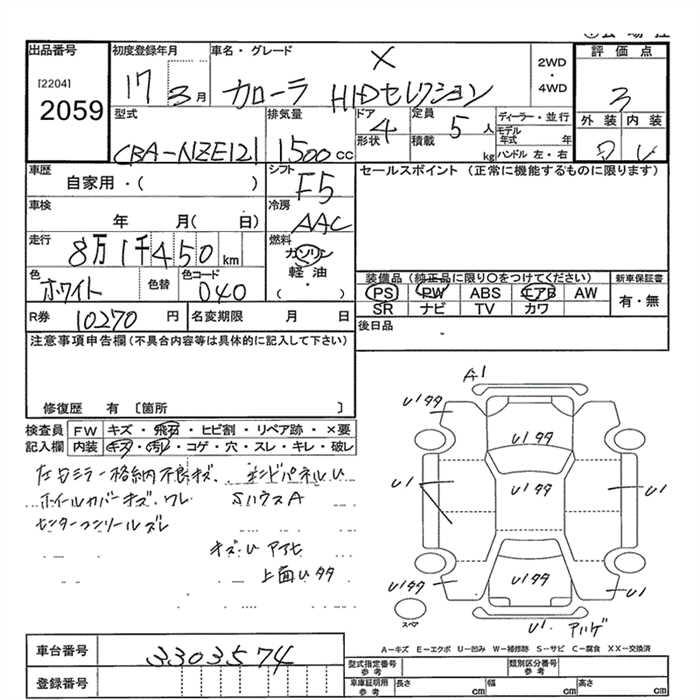 出品番号
[2204]
2059
初度登録年月
17 3月
車名・グレード
X
カローラ HIDセレクション
2WD
・
4WD
評価点
3
外装 内装
型式
CBA-NZE121
排気量
1500cc
ドア
4
形状
定員
5人
積載
kg
ディーラー・並行
モデル年式 年
ハンドル 左・右
車歴
自家用・( )
シフト
F5
セールスポイント (正常に機能するものに限ります)
車検
年 月( 日)
冷房
AAC
走行
8万1千450km
燃料
ガソリン
軽油
・
( )
色
ホワイト
色替
色コード
040
装備品 (純正品に限り○をつけてください)
PS PW ABS エアB AW
SR ナビ TV カワ
新車保証書
有・無
R券 10270円
名変期限 月 日
後日品
注意事項申告欄(不具合内容等は具体的に記入して下さい)
修復歴 有 〔箇所 〕
検査員 FW キズ・飛石・ヒビ割・リペア跡・×要
記入欄 内装 キズ・汚レ・コゲ・穴・スレ・キレ・破レ
左右ミラー格納不良キズ、エンドパネルU
ホイールカバーキズ、ワレ SハウスA
センターコンソールズレ
上面Uタタ
A1
U1タタ
U1タタ
U1 U1タタ U1
U1タタ U1タタ U1
スペア
U1. アハゲ
A-キズ E-エクボ U-凹み W-補修跡 S-サビ C-腐食 XX-交換済
車台番号 3303574
登録番号
型式指定番号
参考
類別区分番号
参考
車庫証明用
参考
長さ cm 幅 cm 高さ cm